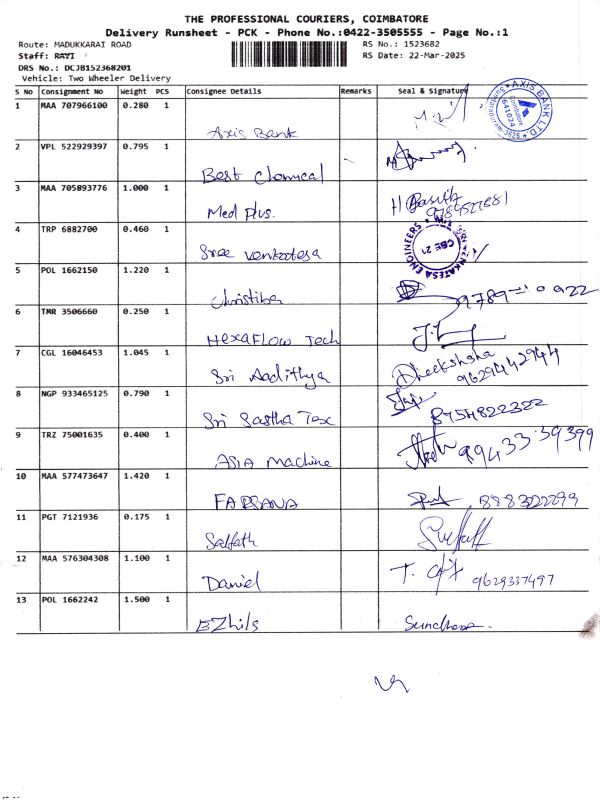 THE PROFESSIONAL COURIERS, COIMBATORE
Delivery Runsheet - PCK - Phone No.:0422-3505555 - Page No.:1
Route: MADUKKARAI ROAD RS No.: 1523682
Staff: RAVI RS Date: 22-Mar-2025
DRS No.: DCJB152368201
Vehicle: Two Wheeler Delivery
S No Consignment No Weight PCS Consignee Details Remarks Seal & Signature
1 MAA 707966100 0.280 1 Axis Bank
AXIS BANK LTD
Coimbatore
641024
2 VPL 522929397 0.795 1 Best Chemical
3 MAA 705893776 1.000 1 Med Plus.
4 TRP 6882700 0.460 1 Sree Venkatesa
VENKATESA ENGINEERS
CBE 21
5 POL 1662150 1.220 1
6 TMR 3506660 0.250 1 HexaFlow Tech
7 CGL 16046453 1.045 1 Sri Aadithya Dheekshsha
9629442944
8 NGP 933465125 0.790 1 Sri Sastha Tex 8754822322
9 TRZ 75001635 0.400 1 ASIA Machine 99433 39399
10 MAA 577473647 1.420 1 FARSANA
11 PGT 7121936 0.175 1
12 MAA 576304308 1.100 1 Daniel 9629337497
13 POL 1662242 1.500 1 EZhils